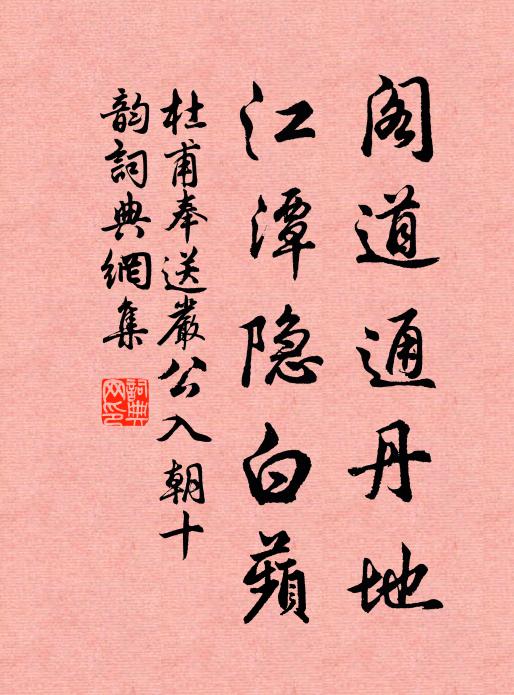 阁道通丹地
江潭隐白蘋
杜甫奉送嚴公入朝十
韵詞典網集
詞典
网印